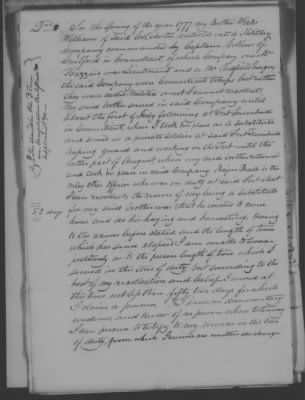 2nd In the Spring of the year 1777 my brother
Williams of said Colchester enlisted into a Military
Company commanded by Captain
Guilford in Connecticut, of which Company one Mr
Hazzard was Lieutenant and a Mr
the said Company were Connecticut troops but whether
they were called Militia or not I cannot recollect
My said brother served in said Company until
about the first of July following at Fort Trumbull
in Connecticut, when I took his place as a Substitute
and served as a private soldier at said Fort Trumbull
keeping guard and working on the Fort until the
latter part of August when my said brother returned
and took his place in said Company.
only other officer who was on duty at said Fort that
I can recollect the reason of my being a substitute
for my said brother was that he wished to come
home and do his haying and harvesting. Owing
to the causes before stated and the length of time
which has since elapsed I am unable to swear
positively as to the precise length of time which I
served in this tour of duty, but according to the
best of my recollection and belief I served at
this time not less than fifty two days for which
I claim a pension. I have no documentary
evidence and know of no person whose testimony
I can procure to testify to my services in this tour
of duty, from which I received no written discharge
52 days